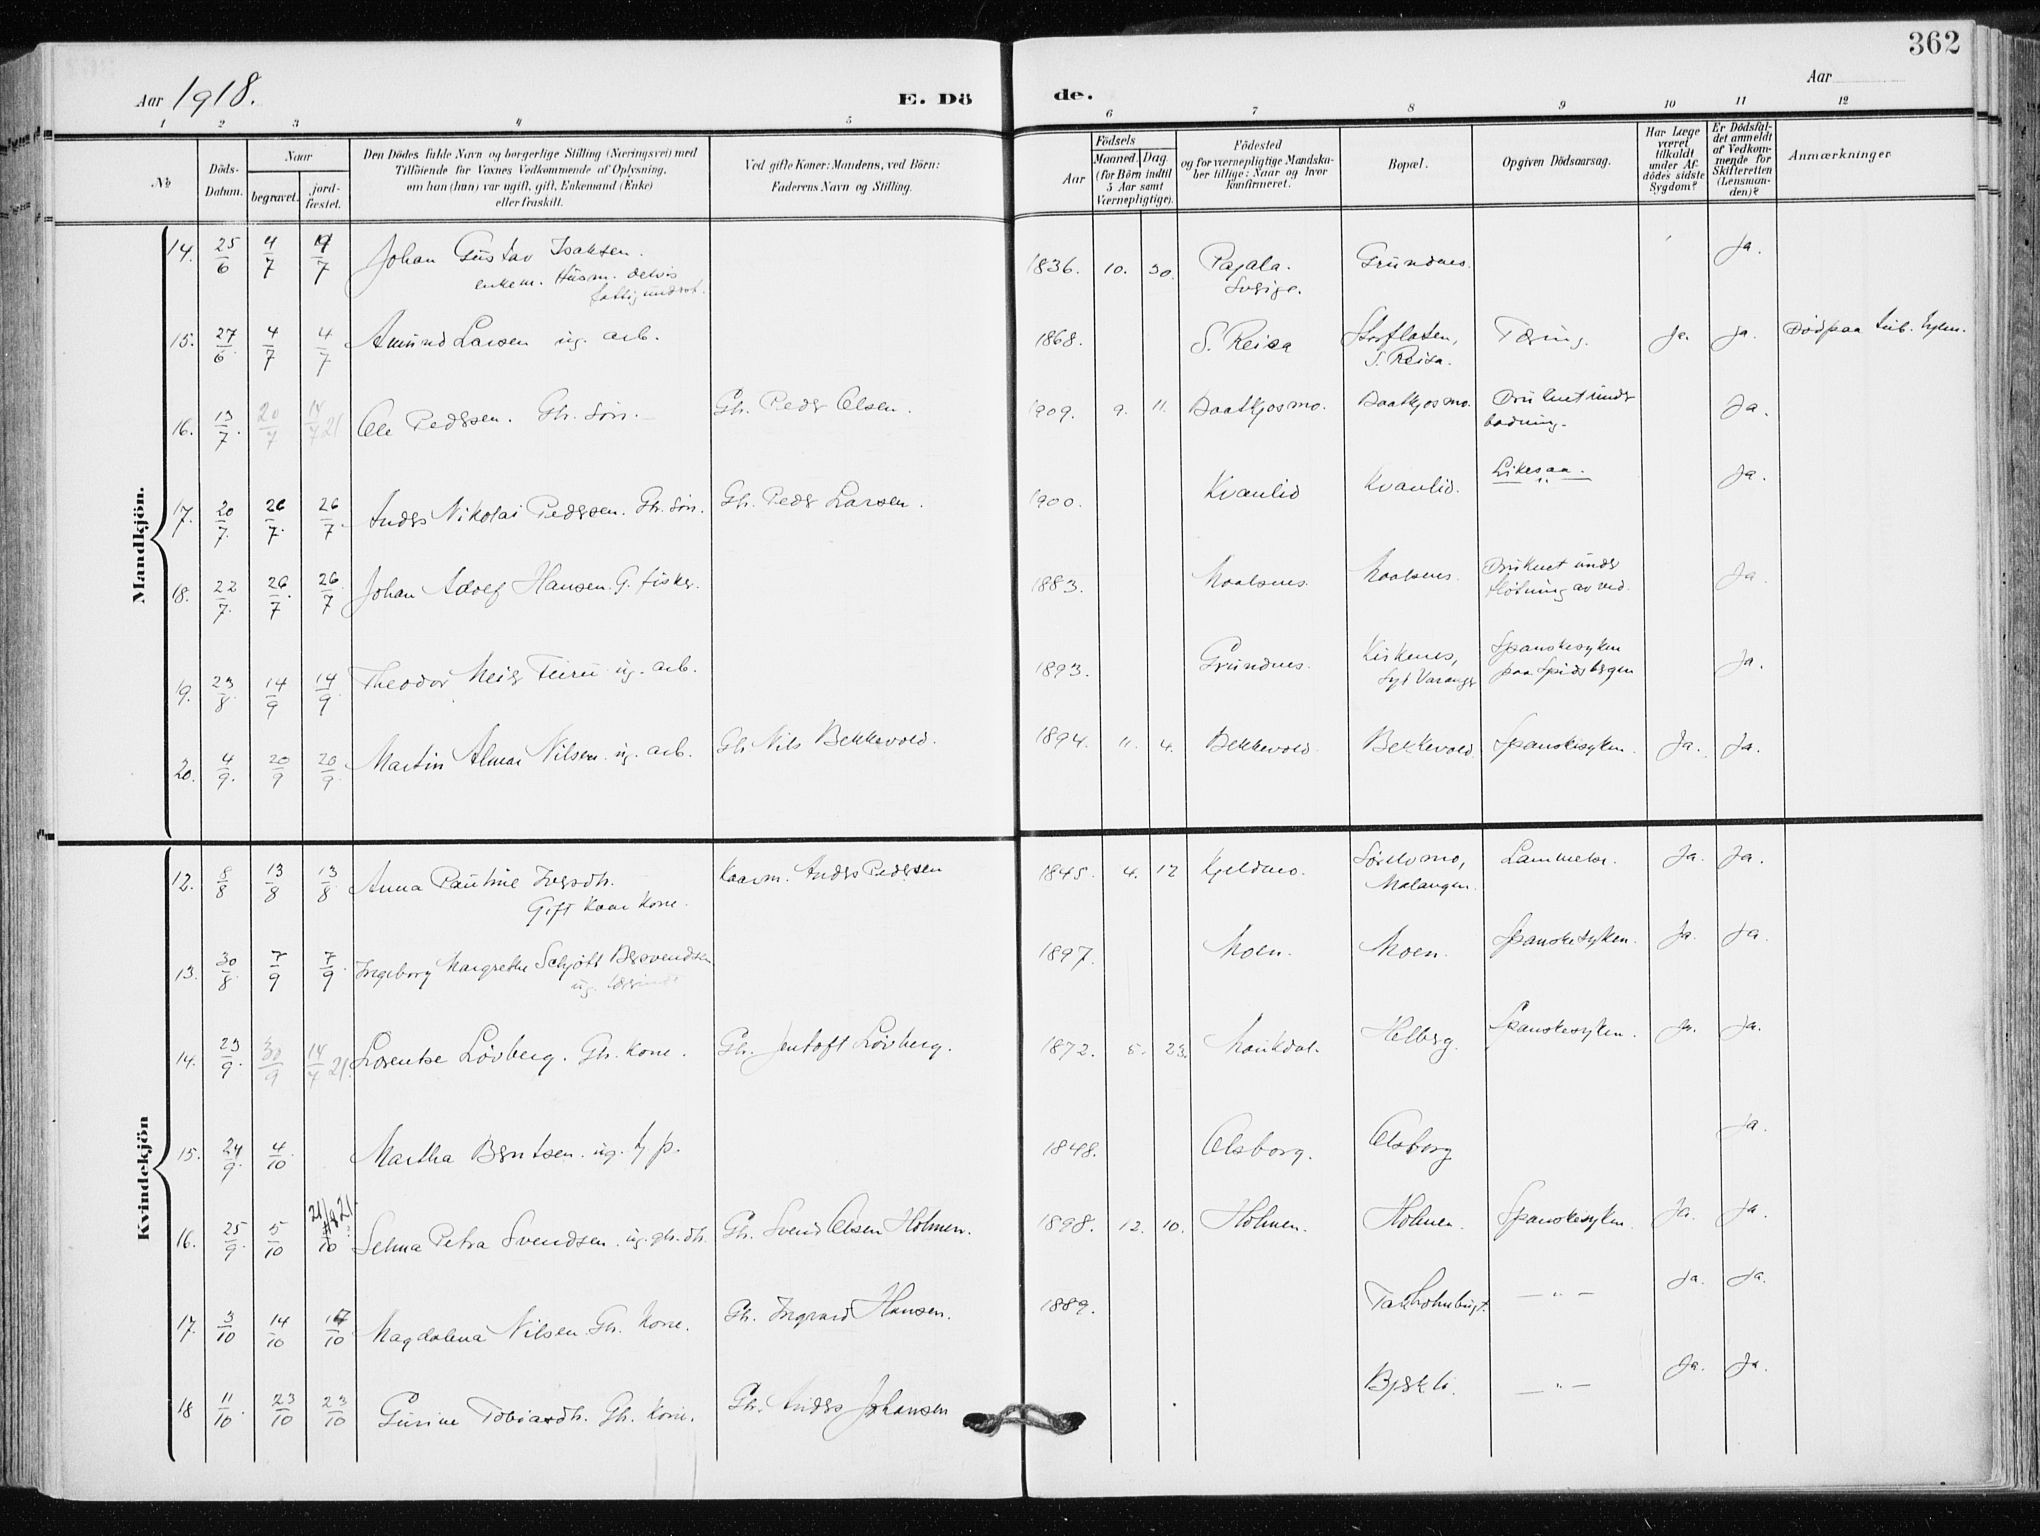 362
Aar 1918.
E. Dö
de.
Aar
1 2 3 4 5 6 7 8 9 10 11 12
No
Döds-Datum.
Naar
begravet.
jord-fæstet.
Den Dödes fulde Navn og borgerlige Stilling (Næringsvei) med
Tilföiende for Voxnes Vedkommende af Oplysning,
om han (hun) var ugift, gift, Enkemand (Enke)
eller fraskilt.
Ved gifte Koner: Mandens, ved Börn:
Faderens Navn og Stilling.
Födsels
Aar
Maaned. Dag
(for Börn indtil
5 Aar samt
Værnepligtige).
Födested
og for værnepligtige Mandska-
ber tillige: Naar og hvor
konfirmeret.
Bopæl.
Opgiven Dödsaarsag.
Har Læge
været
tilkaldt
under Af-
dödes sidste
Sygdom?
Er Dödsfal-
det anmeldt
af Vedkom-
mende for
Skifteretten
(Lensman-
den)?
Anmærkninger
Mandkjön.
14. 25/6 4/7 4/7 Johan Gustav Isaksen. 1836. 10. 30. Pajala. Grundnes. Ja.
enkem. Husm. delvis Sverige.
fattigunderst.
15. 27/6 4/7 4/7 Amund Larsen ug. arb. 1868. S. Reisa Storfloten, Tæring. Ja. Ja. Död paa
S. Reisa.
16. 13/7 20/7 14/7 21 Ole Pedersen. Gb. sön. Gb. Peder Olsen. 1909. 9. 11. Baatkjosmo. Baatkjosmo. Druknet under Ja.
badning.
17. 20/7 26/7 26/7 Anders Nikolai Pedersen. Gb. sön. Gb. Peder Larsen. 1900. Kvanlid Kvanlid. Likesaa. Ja.
18. 22/7 26/7 26/7 Johan Adolf Hansen. G. fisker. 1883. Maalsnes. Maalsnes. Druknet under Ja.
flötning av ved.
19. 23/8 14/9 14/9 Theodor Meier ug. arb. 1893. Grundnes. Kirkenes, Spanskesyken Ja.
Syd Varanger paa Spidsbergen
20. 4/9. 20/9 20/9. Martin Almar Nilsen. ug. arb. Gb. Nils Bekkevold. 1894. 11. 4. Bekkevold. Bekkevold. Spanskesyken. Ja. Ja.
Kvindekjön
12. 8/8 13/8 13/8 Anna Pauline Iversdtr. Kaarm. Anders Pedersen 1845. 4. 12 Kjeldmo. Sörelvmo, Lammelse. Ja. Ja.
Gift kaarkone. Malangen.
13. 30/8 7/9 7/9 Ingeborg Margrethe Schjött Bersvendsen 1897. Moen. Moen. Spanskesyken. Ja. Ja.
ug.
14. 23/9. 30/9 14/7 21. Lorentse Lövberg. Gb. kone. Gb. Jentoft Lövberg. 1872. 5. 23. Maukdal. Helberg. Spanskesyken. Ja. Ja.
15. 24/9. 4/10 Martha Berntsen. ug. 1848. Olsborg. Olsborg Ja.
16. 25/9. 5/10 Selma Petra Svendsen. ug. gb. dtr. Gb. Svend Olsen Holmen. 1898. 12. 10. Holmen. Holmen. Spanskesyken. Ja. Ja.
17. 3/10 14/10 14/10 Magdalena Nilsen. Gb. kone. Gb. Ingvard Hansen. 1889. — " — Ja. Ja.
18 11/10. 23/10 23/10 Gurine Tobiasdtr. Gb. kone. Gb. Anders Johansen Bjerkli. — " — Ja. Ja.